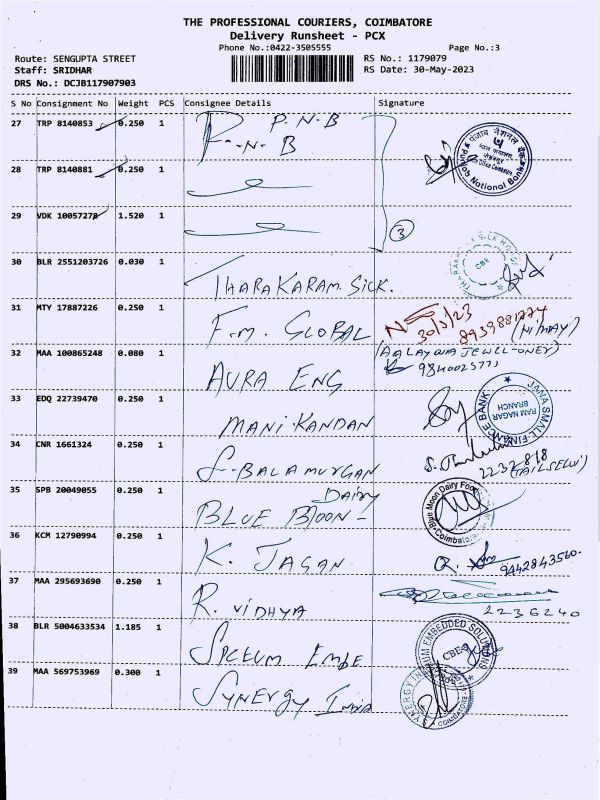 THE PROFESSIONAL COURIERS, COIMBATORE
Delivery Runsheet - PCX
Phone No.:0422-3505555 Page No.:3
Route: SENGUPTA STREET RS No.: 1179079
Staff: SRIDHAR RS Date: 30-May-2023
DRS No.: DCJB117907903
S No Consignment No Weight PCS Consignee Details Signature
27 TRP 8140853 0.250 1 P.N.B
P.N.B
28 TRP 8140881 0.250 1
पंजाब नैशनल बैंक
Punjab National Bank
29 VDK 10057278 1.520 1
3
30 BLR 2551203726 0.030 1 THARAKARAM SICK.
CBE
31 MTY 17887226 0.250 1 F.M. GLOBAL
30/5/23
8939881774
(NIMAY)
32 MAA 100865248 0.080 1 AURA ENG
9840025771
33 EDQ 22739470 0.250 1 MANI KANDAN
JANA SMALL FINANCE BANK
RAM NAGAR
BRANCH
34 CNR 1661324 0.250 1 S. BALAMURGAN
35 SPB 20049055 0.250 1 BLUE MOON - DAIRY
Blue Moon Dairy Foods
Coimbatore
36 KCM 12790994 0.250 1 K. JAGAN
9442843560
37 MAA 295693690 0.250 1 R. VIDHYA
2236240
38 BLR 5004633534 1.185 1
EMBEDDED SOLUTIONS
CBE
39 MAA 569753969 0.300 1 SYNERGY
COIMBATORE